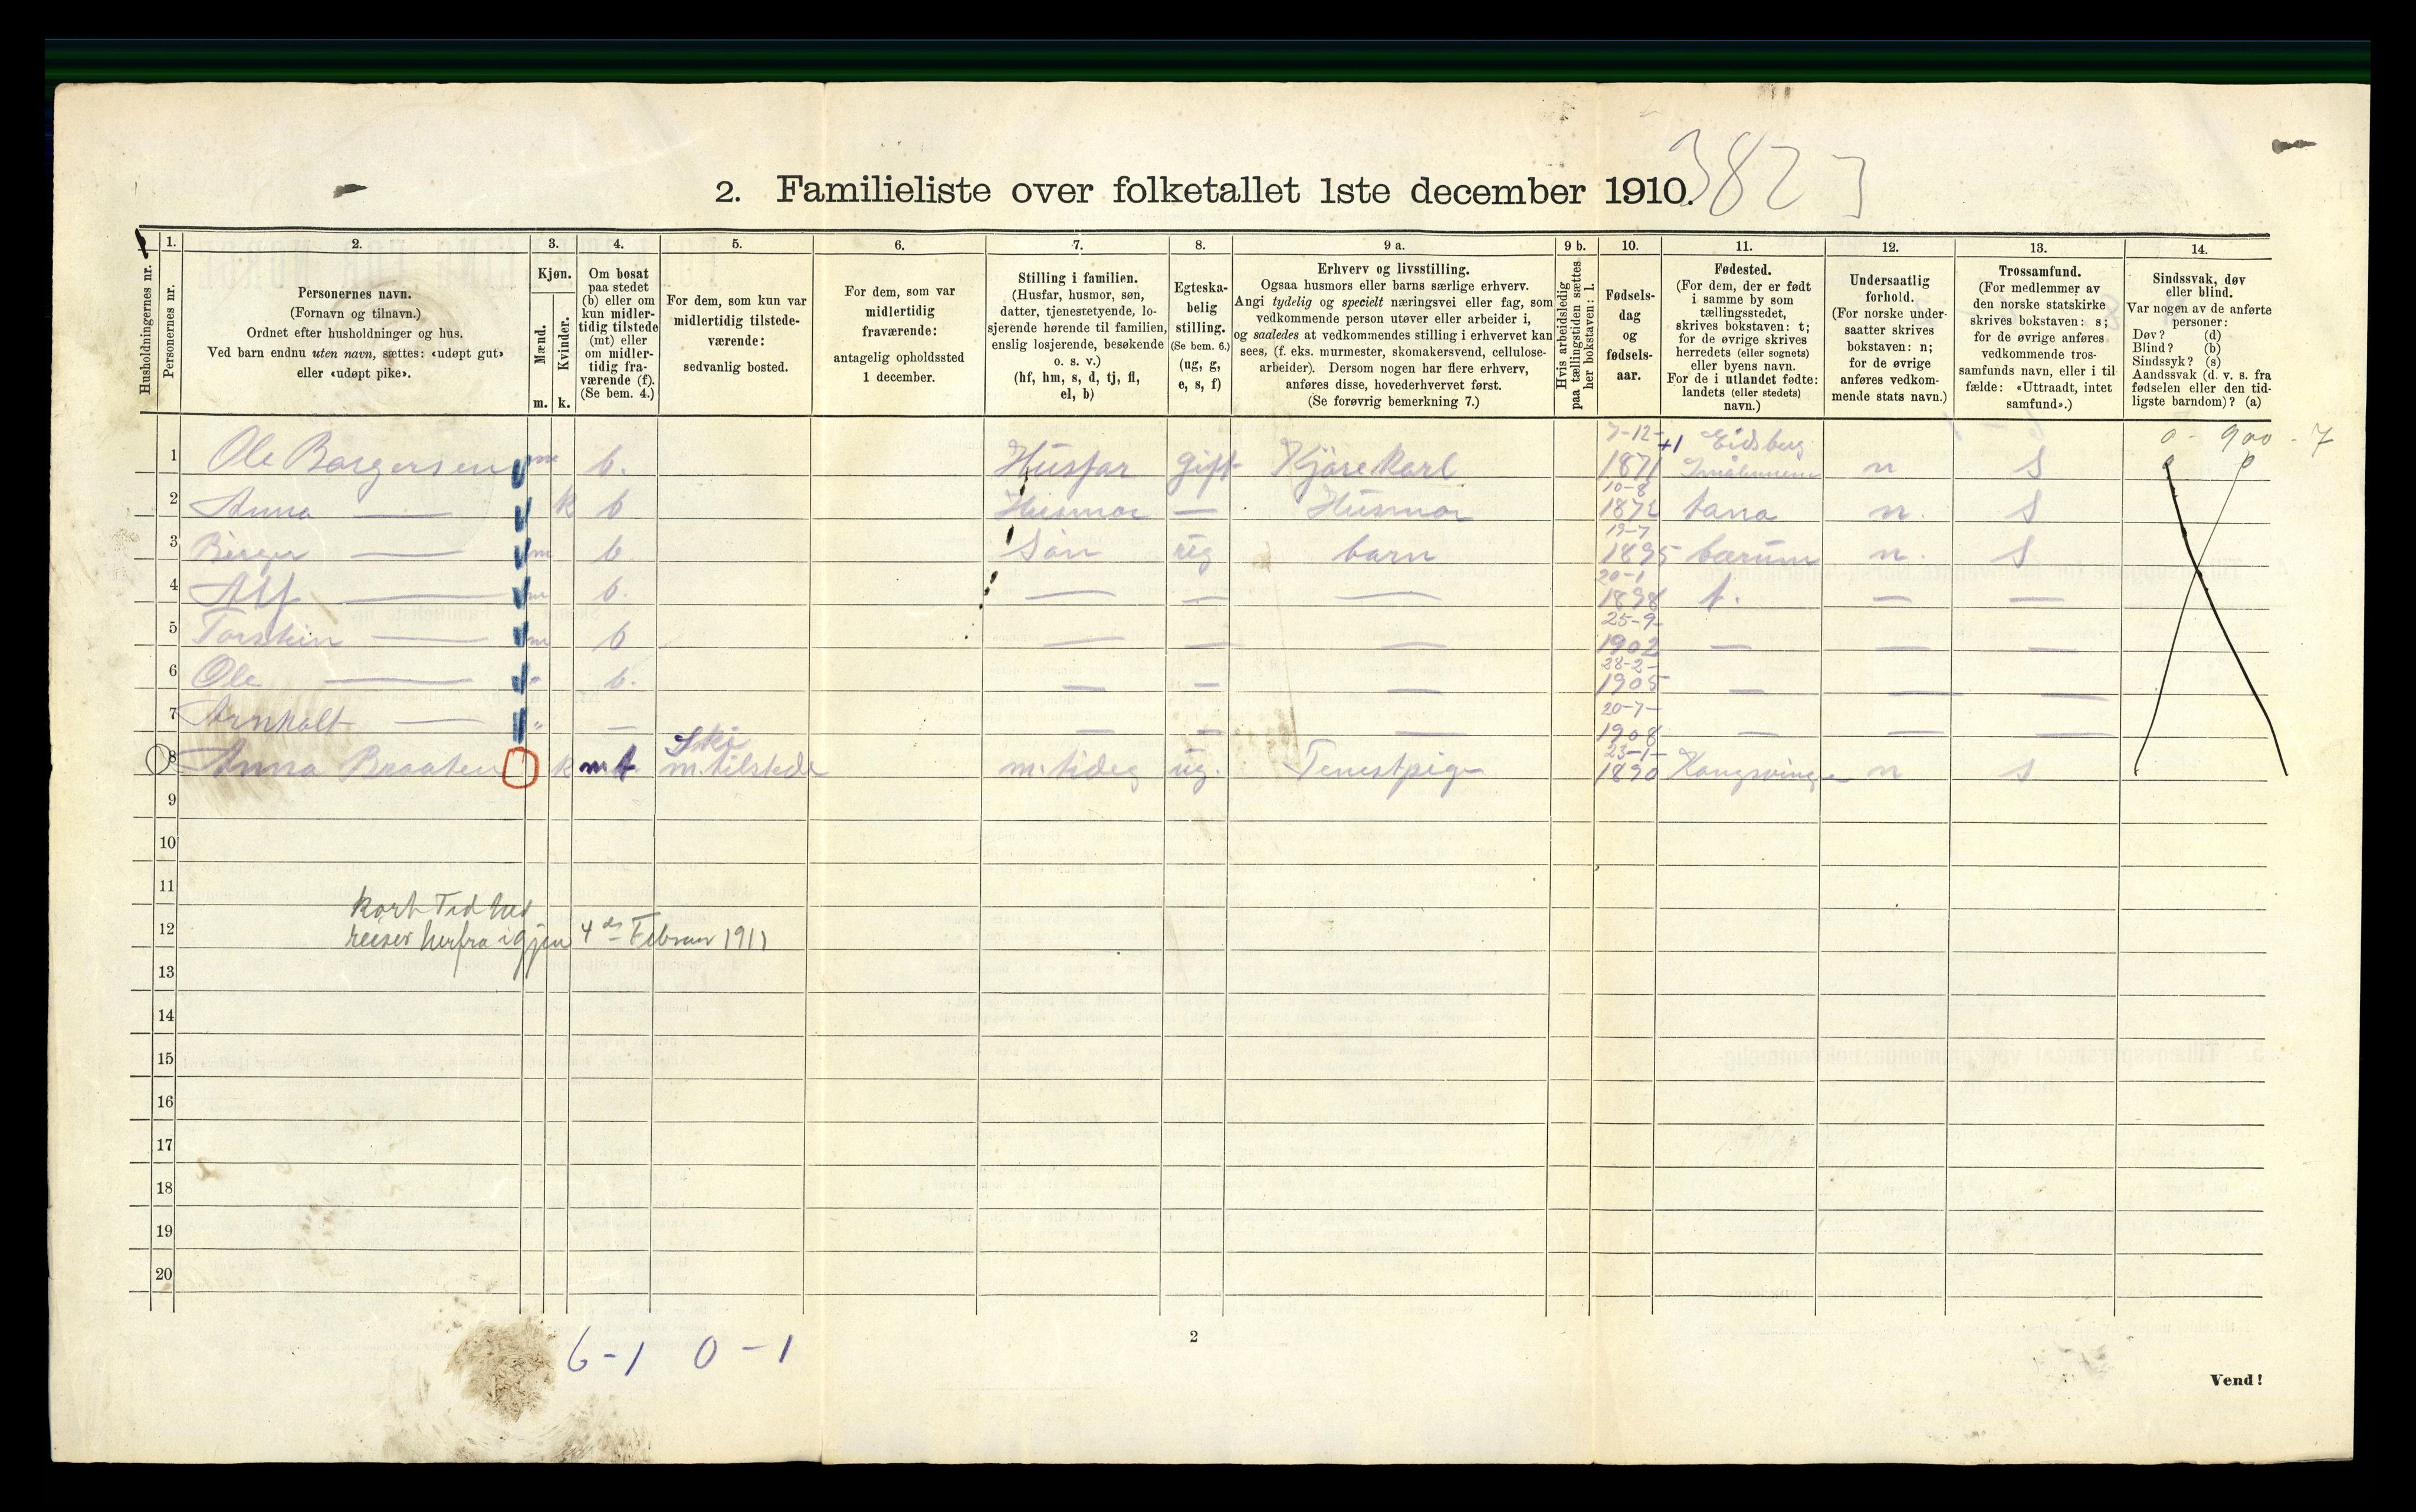 2. Familieliste over folketallet 1ste december 1910.
3823
Husholdningernes nr.
1.
Personernes nr.
2.
Personernes navn.
(Fornavn og tilnavn.)
Ordnet efter husholdninger og hus.
Ved barn endnu uten navn, sættes: «udøpt gut»
eller «udøpt pike».
3.
Kjøn.
Mænd.
Kvinder.
m. k.
4.
Om bosat
paa stedet
(b) eller om
kun midler-
tidig tilstede
(mt) eller
om midler-
tidig fra-
værende (f).
(Se bem. 4.)
5.
For dem, som kun var
midlertidig tilstede-
værende:
sedvanlig bosted.
6.
For dem, som var
midlertidig
fraværende:
antagelig opholdssted
1 december.
7.
Stilling i familien.
(Husfar, husmor, søn,
datter, tjenestetyende, lo-
sjerende hørende til familien,
enslig losjerende, besøkende
o. s. v.)
(hf, hm, s, d, tj, fl,
el, b)
8.
Egteska-
belig
stilling.
(Se bem. 6.)
(ug, g,
e, s, f)
9 a.
Erhverv og livsstilling.
Ogsaa husmors eller barns særlige erhverv.
Angi tydelig og specielt næringsvei eller fag, som
vedkommende person utøver eller arbeider i,
og saaledes at vedkommendes stilling i erhvervet kan
sees, (f. eks. murmester, skomakersvend, cellulose-
arbeider). Dersom nogen har flere erhverv,
anføres disse, hovederhvervet først.
(Se forøvrig bemerkning 7.)
9 b.
Hvis arbeidsledig
paa tællingstiden sættes
her bokstaven: l.
10.
Fødsels-
dag
og
fødsels-
aar.
11.
Fødested.
(For dem, der er født
i samme by som
tællingsstedet,
skrives bokstaven: t;
for de øvrige skrives
herredets (eller sognets)
eller byens navn.
For de i utlandet fødte:
landets (eller stedets)
navn.)
12.
Undersaatlig
forhold.
(For norske under-
saatter skrives
bokstaven: n;
for de øvrige
anføres vedkom-
mende stats navn.)
13.
Trossamfund.
(For medlemmer av
den norske statskirke
skrives bokstaven: s;
for de øvrige anføres
vedkommende tros-
samfunds navn, eller i til
fælde: «Uttraadt, intet
samfund».)
14.
Sindssvak, døv
eller blind.
Var nogen av de anførte
personer:
Døv? (d)
Blind? (b)
Sindssyk? (s)
Aandssvak (d. v. s. fra
fødselen eller den tid-
ligste barndom)? (a)
0 - 900 - 7
1 Ole Borgersen m b. Husfar gift Kjörekarl 7-12- 1871 +1 Eidsberg Smålenene n S
2 Anna — k b Husmor — Husmor 10-8 1872 tana n. S
3 Birger — m b Sön ug barn 19-7 1895 bærum n. S
4 Alf — m b. — — — 20-1 1898 t. — —
5 Torstein — m b — — — 25-9- 1902 — — —
6 Ole — " b. — — — 28-2- 1905 — — —
7 Arnholt — " — — — — 20-7- 1908 — — —
8 Anna Braaten k mt Ski m. tilstede m. tideg ug. Tenestpige 23-1- 1890 Kongsvinger n s
9
10
11
kort Tid her
12 reiser herfra igjen 4de Februar 1911
13
14
15
16
17
18
19
20
6-1 0-1
2
Vend!